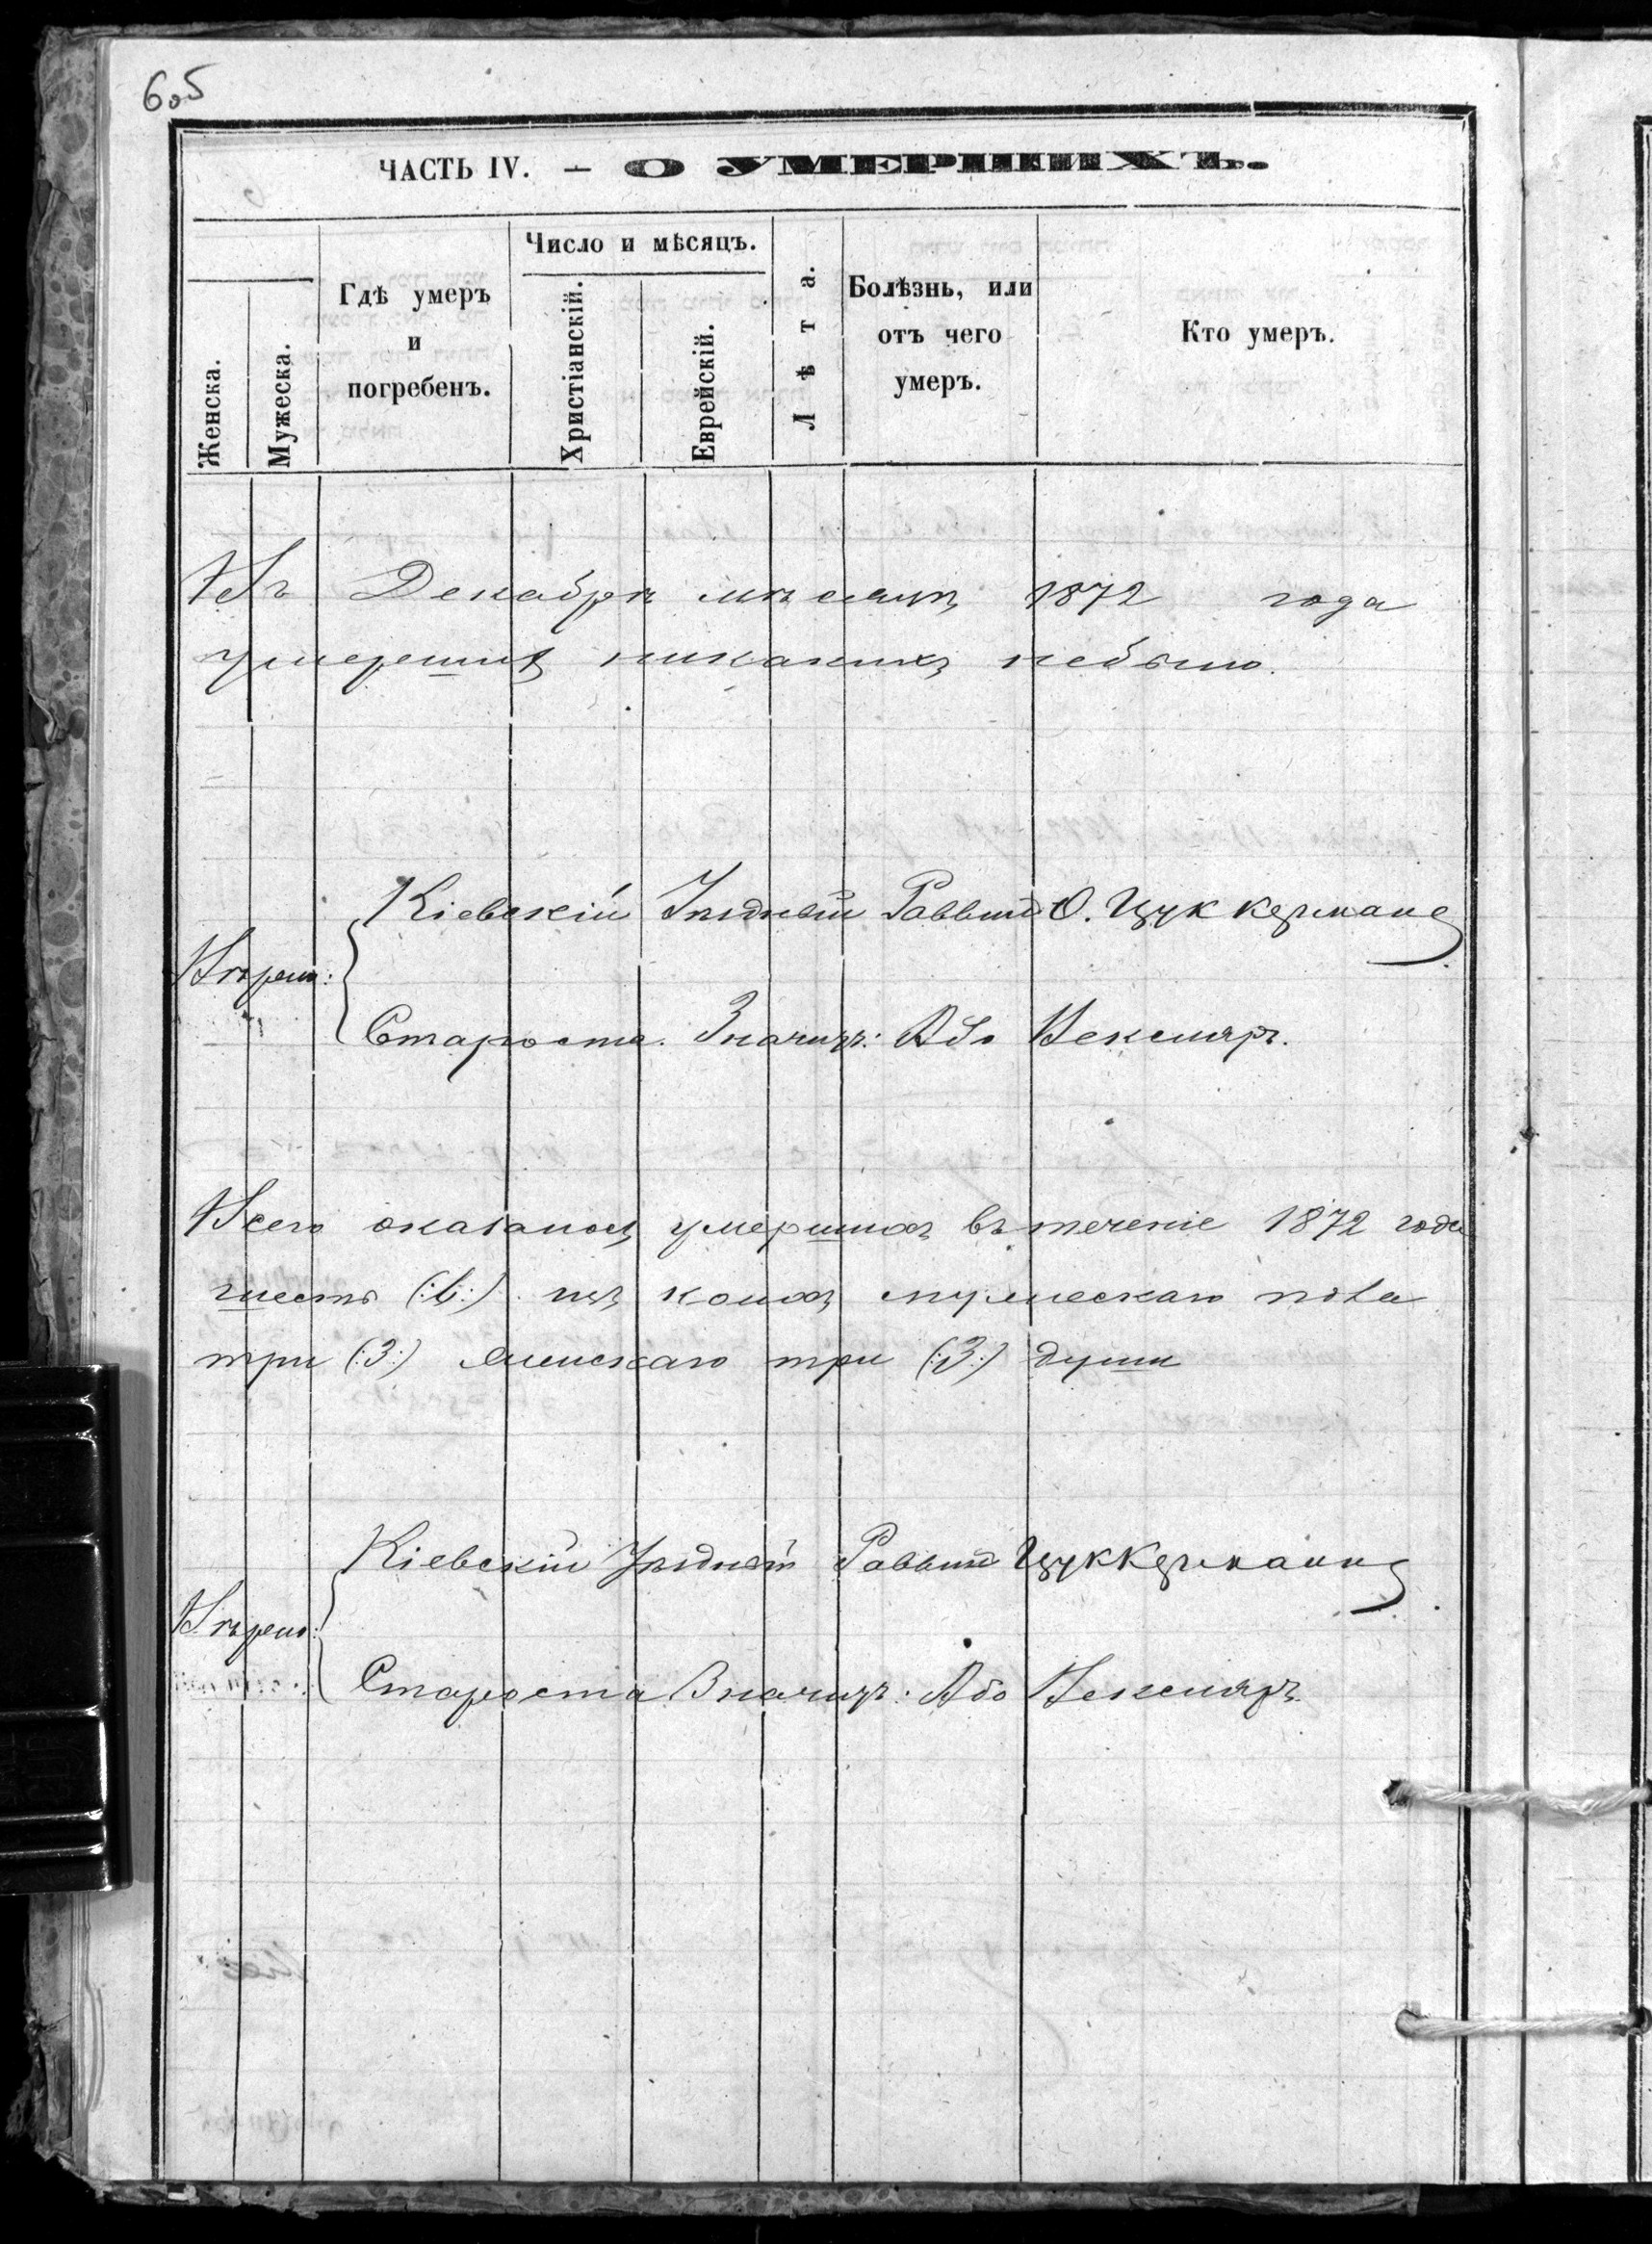 605
ЧАСТЬ IV. — О УМЕРШИХЪ.
Женска.
Мужеска.
Гдѣ умеръ
и
погребенъ.
Число и мѣсяцъ.
Христіанскій.
Еврейскій.
Лѣта.
Болѣзнь, или
отъ чего
умеръ.
Кто умеръ.
Въ Декабрѣ мѣсяцѣ 1872 года
умершихъ никакихъ небыло.
Кіевскій Уѣздный Раввинъ О. Цуккерманъ
Вѣрно:
Староста. Значитъ: Або Вексляръ.
Всего оказалось умершихъ въ теченіе 1872 года
шесть (:6:) изъ коихъ мужескаго пола
три (:3:) женскаго три (:3:) души
Кіевскій Уѣздный Раввинъ Цуккерманъ
Вѣрно:
Староста Значитъ: Або Вексляръ.